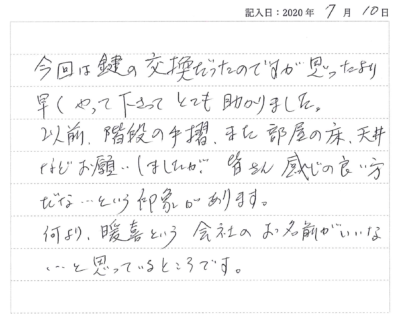 記入日：2020年 7月 10日
今回は鍵の交換だったのですが思ったより
早くやって下さってとても助かりました。
以前、階段の手摺、また部屋の床、天井
などお願いしましたが、皆さん感じの良い方
だな…という印象があります。
何より、暖喜という会社のお名前がいいな
…と思っているところです。